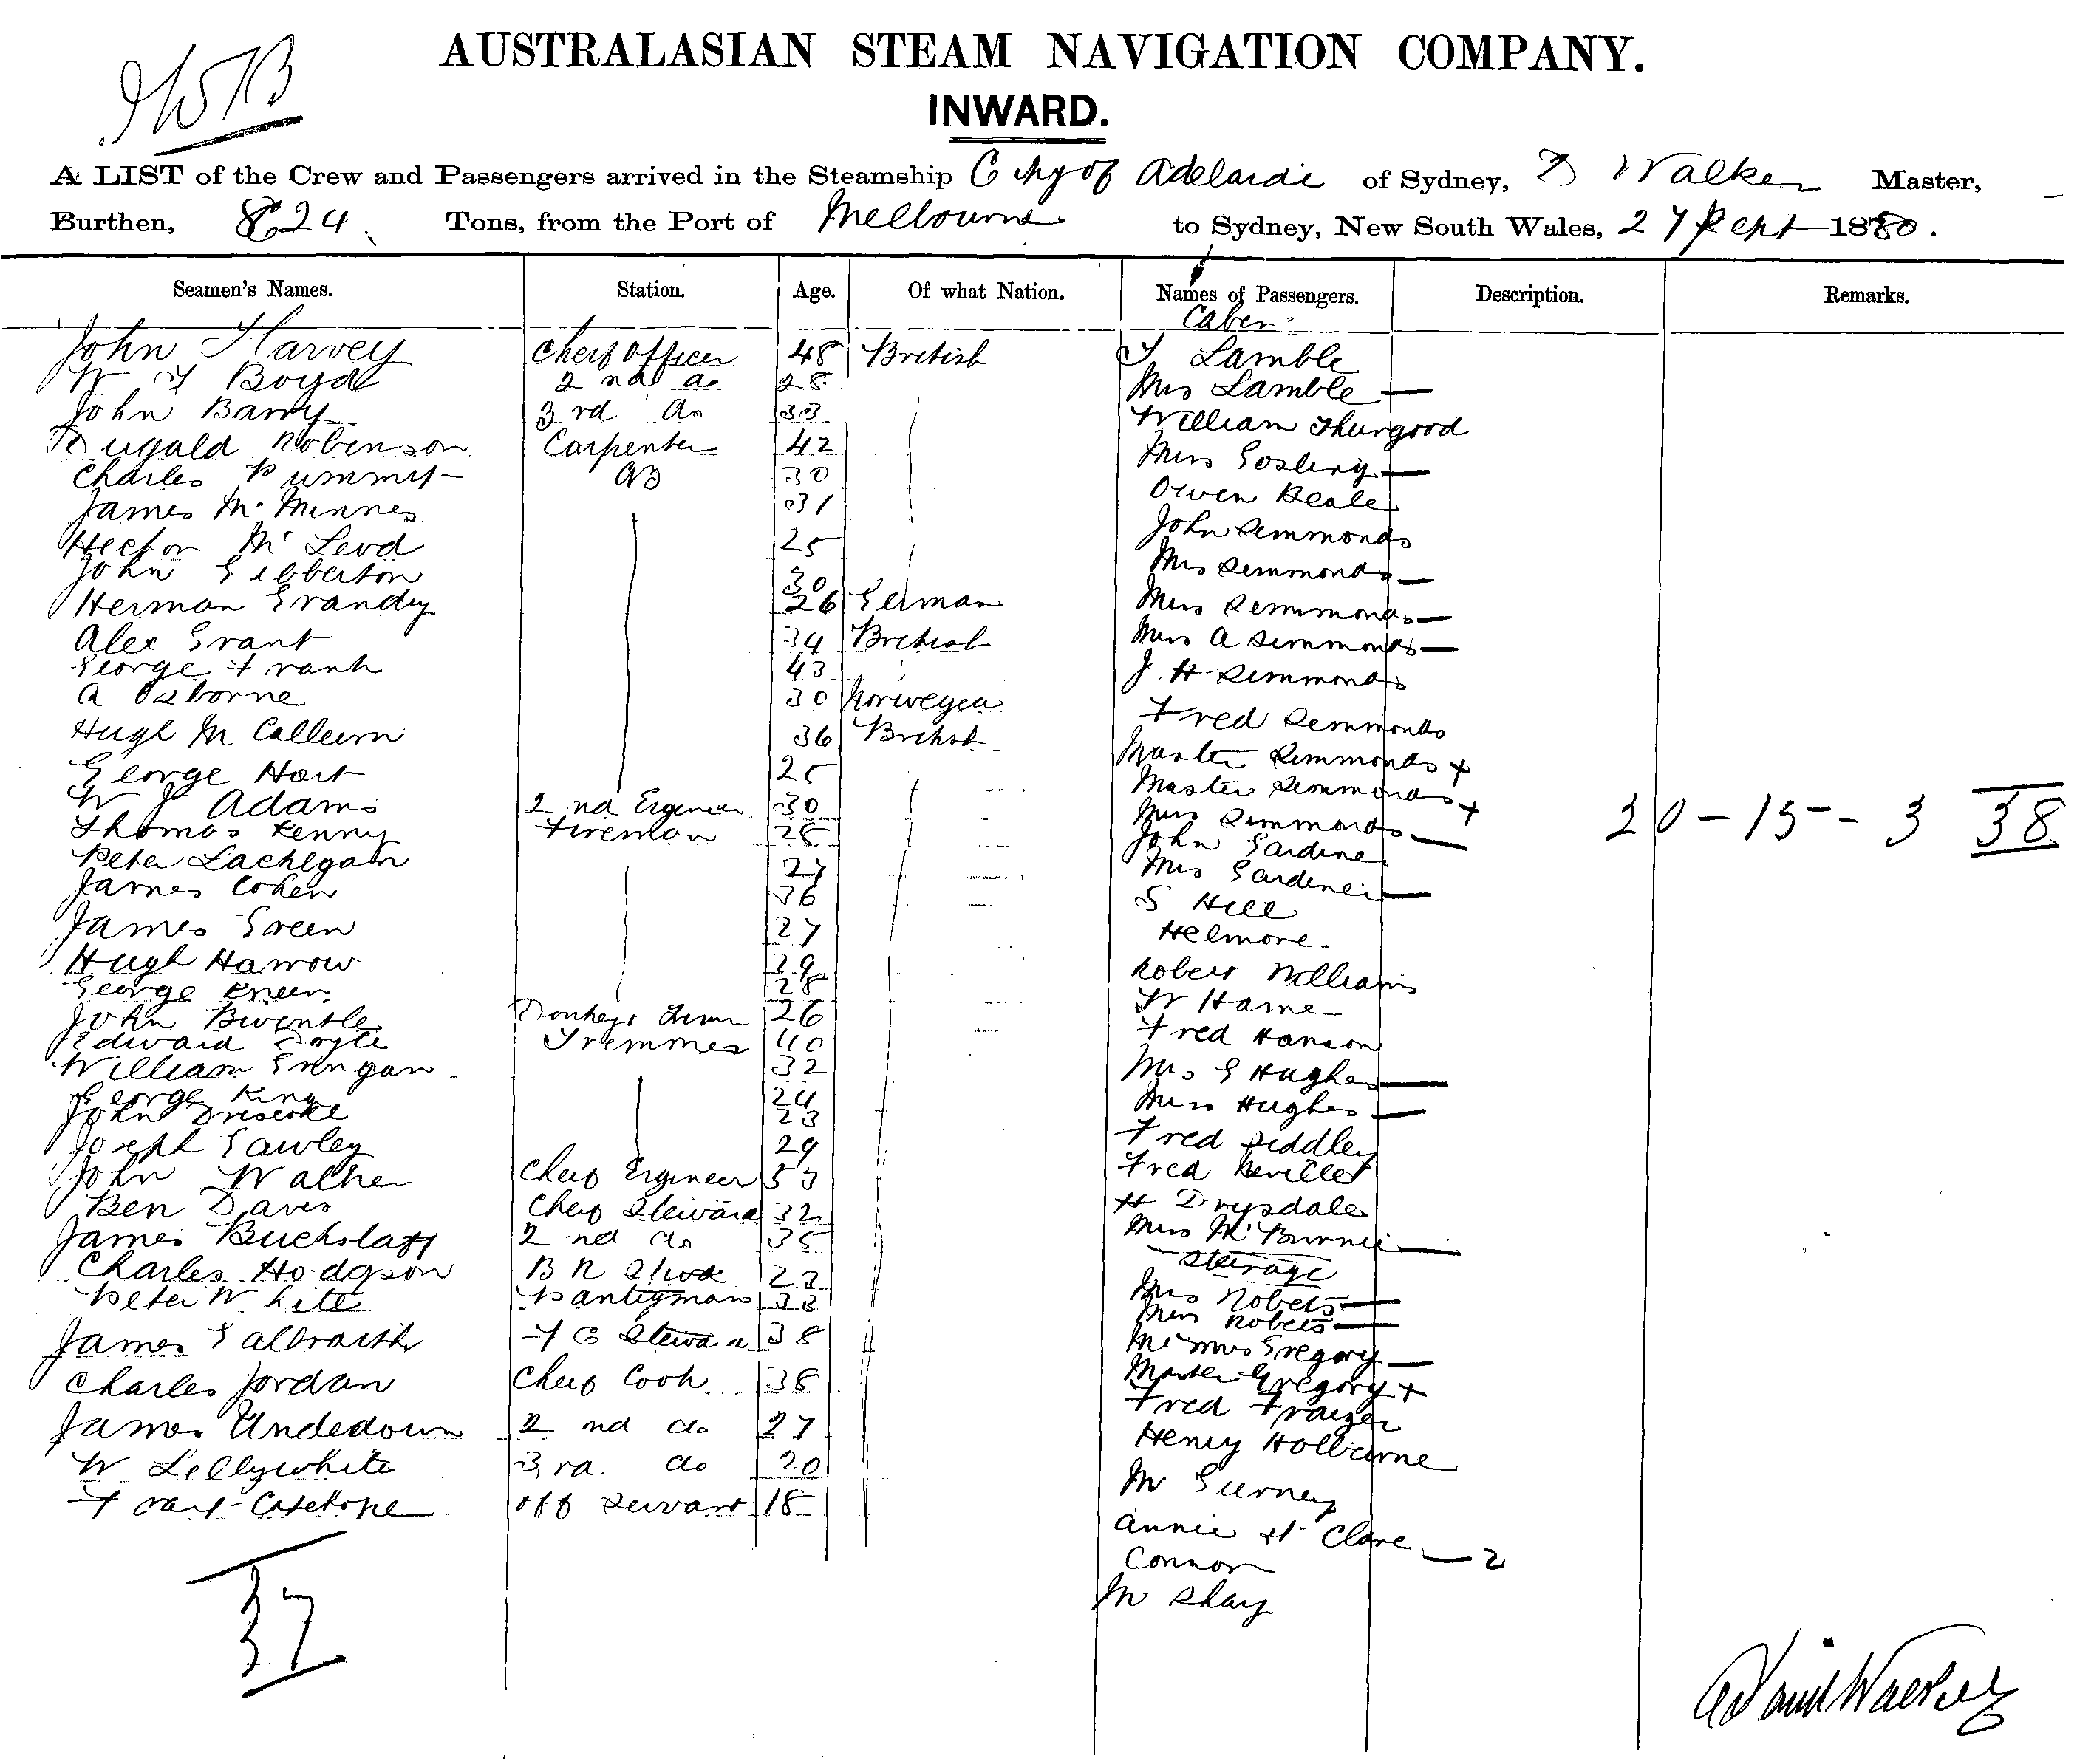 AUSTRALASIAN STEAM NAVIGATION COMPANY.
INWARD.
A LIST of the Crew and Passengers arrived in the Steamship City of Adelaide of Sydney, D Walker Master,
Burthen, 824 Tons, from the Port of Melbourne to Sydney, New South Wales, 27 Sept 1880.
Seamen's Names. Station. Age. Of what Nation. Names of Passengers. Description. Remarks.
Cabin
John Harvey Chief Officer 48 British T Lamble
W T Boyd 2nd do 28 Mrs Lamble —
John Barry 3rd do 33 William Thurgood
Dugald Robinson Carpenter 42 Miss Gosling —
Charles AB 30 Owen Beale
James McMinnes 31 John Simmonds
Hector McLeod 25 Mrs Simmonds —
John Gibberton 30 Miss Simmonds —
Herman Grandy 26 German Miss A Simmonds —
Alex Grant 34 British J. H Simmonds
George Frank 43 Fred Simmonds
A Osborne 30 Norwegea Master Simmonds +
Hugh McCallum 36 British Master Simmonds +
George Hart 25 Miss Simmonds —
W J Adams 2nd Engineer 30 John Gardiner 20 - 15 - 3 38
Thomas Kenny Fireman 28 Mrs Gardiner —
Peter Lachlgan 27 S Hill
James Cohen 36 Helmore
James Green 27 Robert Williams
Hugh Harrow 29 W Harne
George 28 Fred Hanson
John Donkey 26 Mrs G Hughes —
Edward Coyle Trimmer 40 Miss Hughes —
William 32 Fred Siddley
George King 24 Fred Neville
John Driscoll 23 H Drysdale
Joseph Gawley 29 Miss McBurnie —
John Walker Chief Engineer 53 Steerage
Ben Davis Chief Steward 32 Mrs Robets —
James 2nd do 35 Miss Robets —
Charles Hodgson B R Stwd 23 Mrs Gregory —
Peter White Pantryman 33 Master Gregory +
James Galbraith F C Steward 38 Fred Fraizer
Charles Jordan Chief Cook 38 Henry Holburne
James Undedown 2nd do 27 M Gurney
W Lellywhite 3rd do 20 Annie St Clare — 2
off Servant 18 Connor
37 M Shay
David Walker